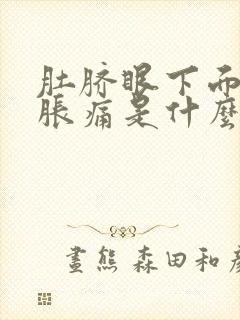 肚脐眼下而
脹痛是什麼
畫熊 森田和彥